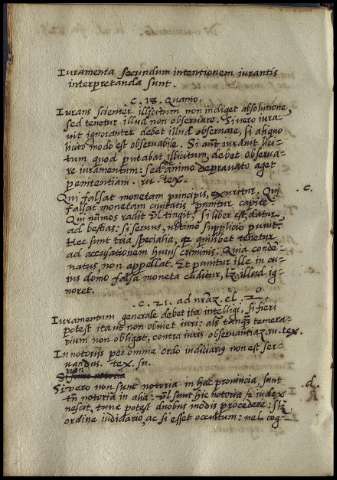 Iuramenta secundum intentionem iurantis
interpretanda sunt.
c. 18. Quanto.
Iurans scienter illicitum non indiget absolutione,
sed tenetur illud non obseruare. Si uero iura-
uit ignoranter debet illud obseruare, si aliquo
modo est obseruabile. Si aut iurauit lici-
tum quod putabat illicitum, debet obserua-
re iuramentum: sed animo deprauato aget
penitentiam. tex.
Qui falsat monetam principis, exuritur. Qui c.
falsat monetam ciuitatis punitur capite.
Qui numos radit tingit, si liber est, datur
ad bestias: si seruus, ultimo supplicio punit.
Hec sunt tria specialia, quilibet tenetur
ad accusationem huius criminis. Quia conde-
natus non appellat. Et punitur ille in cu-
ius domo falsa moneta cuditur, licet illud ig-
noret.
c. 21. ad
Iuramentum generale debet ita intelligi, si fieri
potest ita ut non obuiet iuri: als tanquam temera-
rium non obligat, contra iuris obseruantiam. tex.
In notoriis per omnia ordo iudiciarius non est ser-
uandus. tex.
non
Si uero non sunt notoria in hac prouincia, sunt d.
tn notoria in alia: ul sunt hic notoria & iudex
nescit, tunc potest duobus modis procedere:
ordine iudiciario, ac si esset occultum: uel cog-